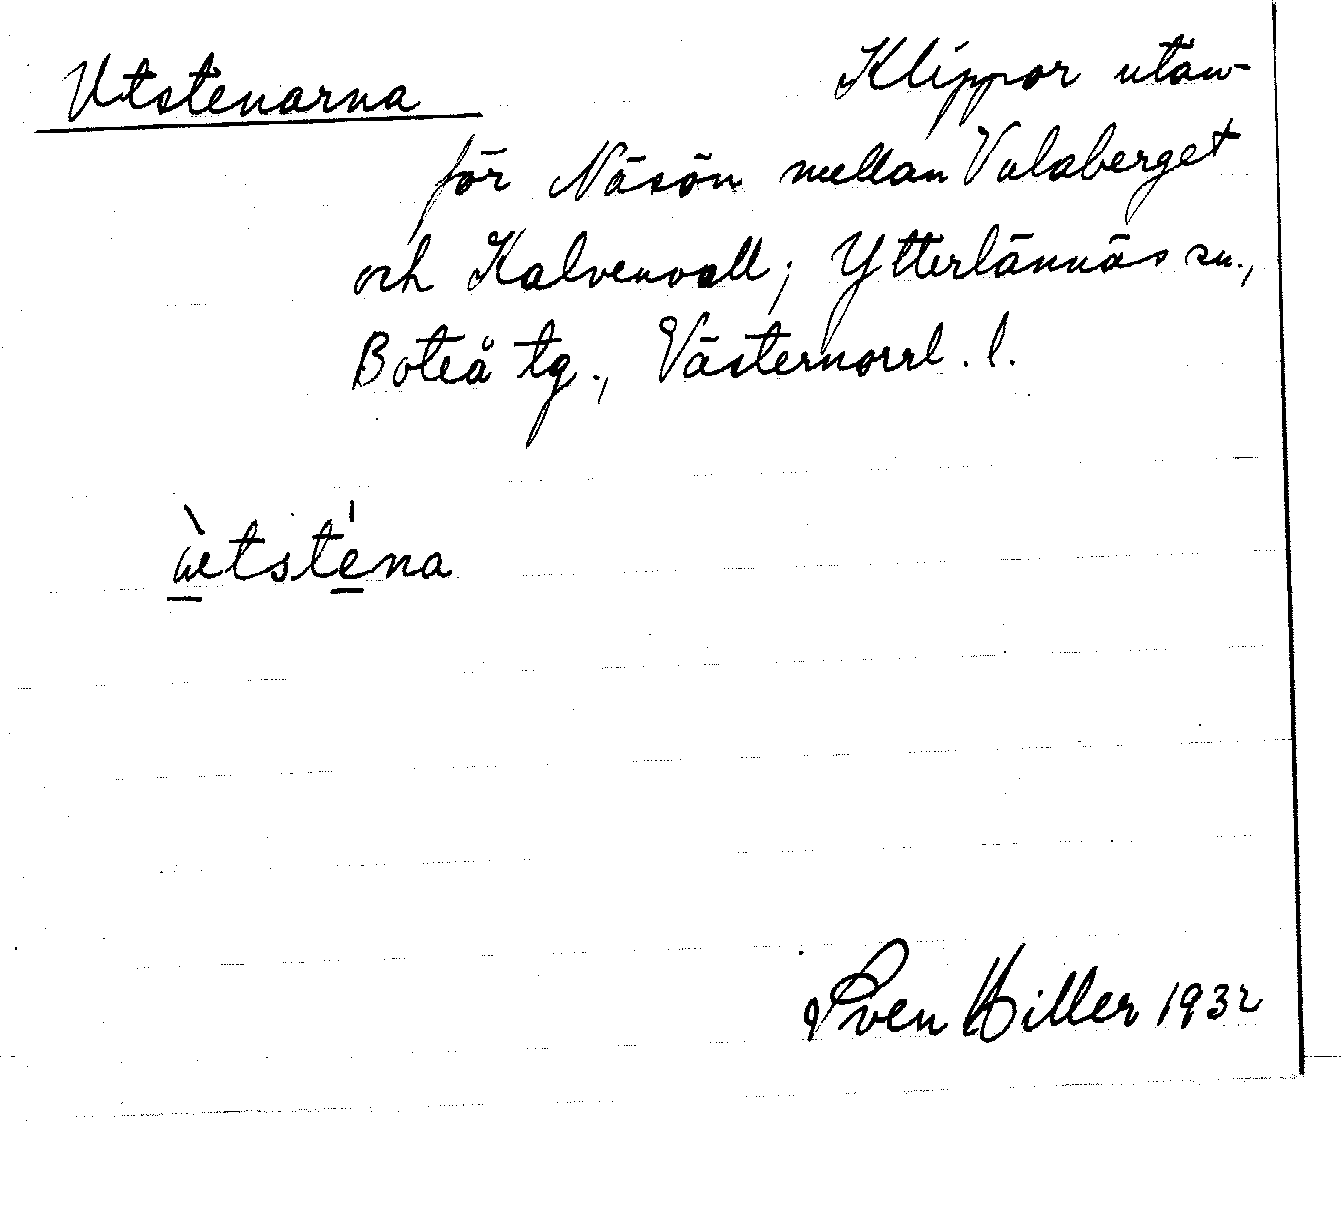 Utstenarna Klippor utan-
för Näsön mellan Valaberget
och Kalvenvall; Ytterlännäs sn.,
Boteå tg., Västernorrl. l.
ùtsténa
Sven Hiller 1932